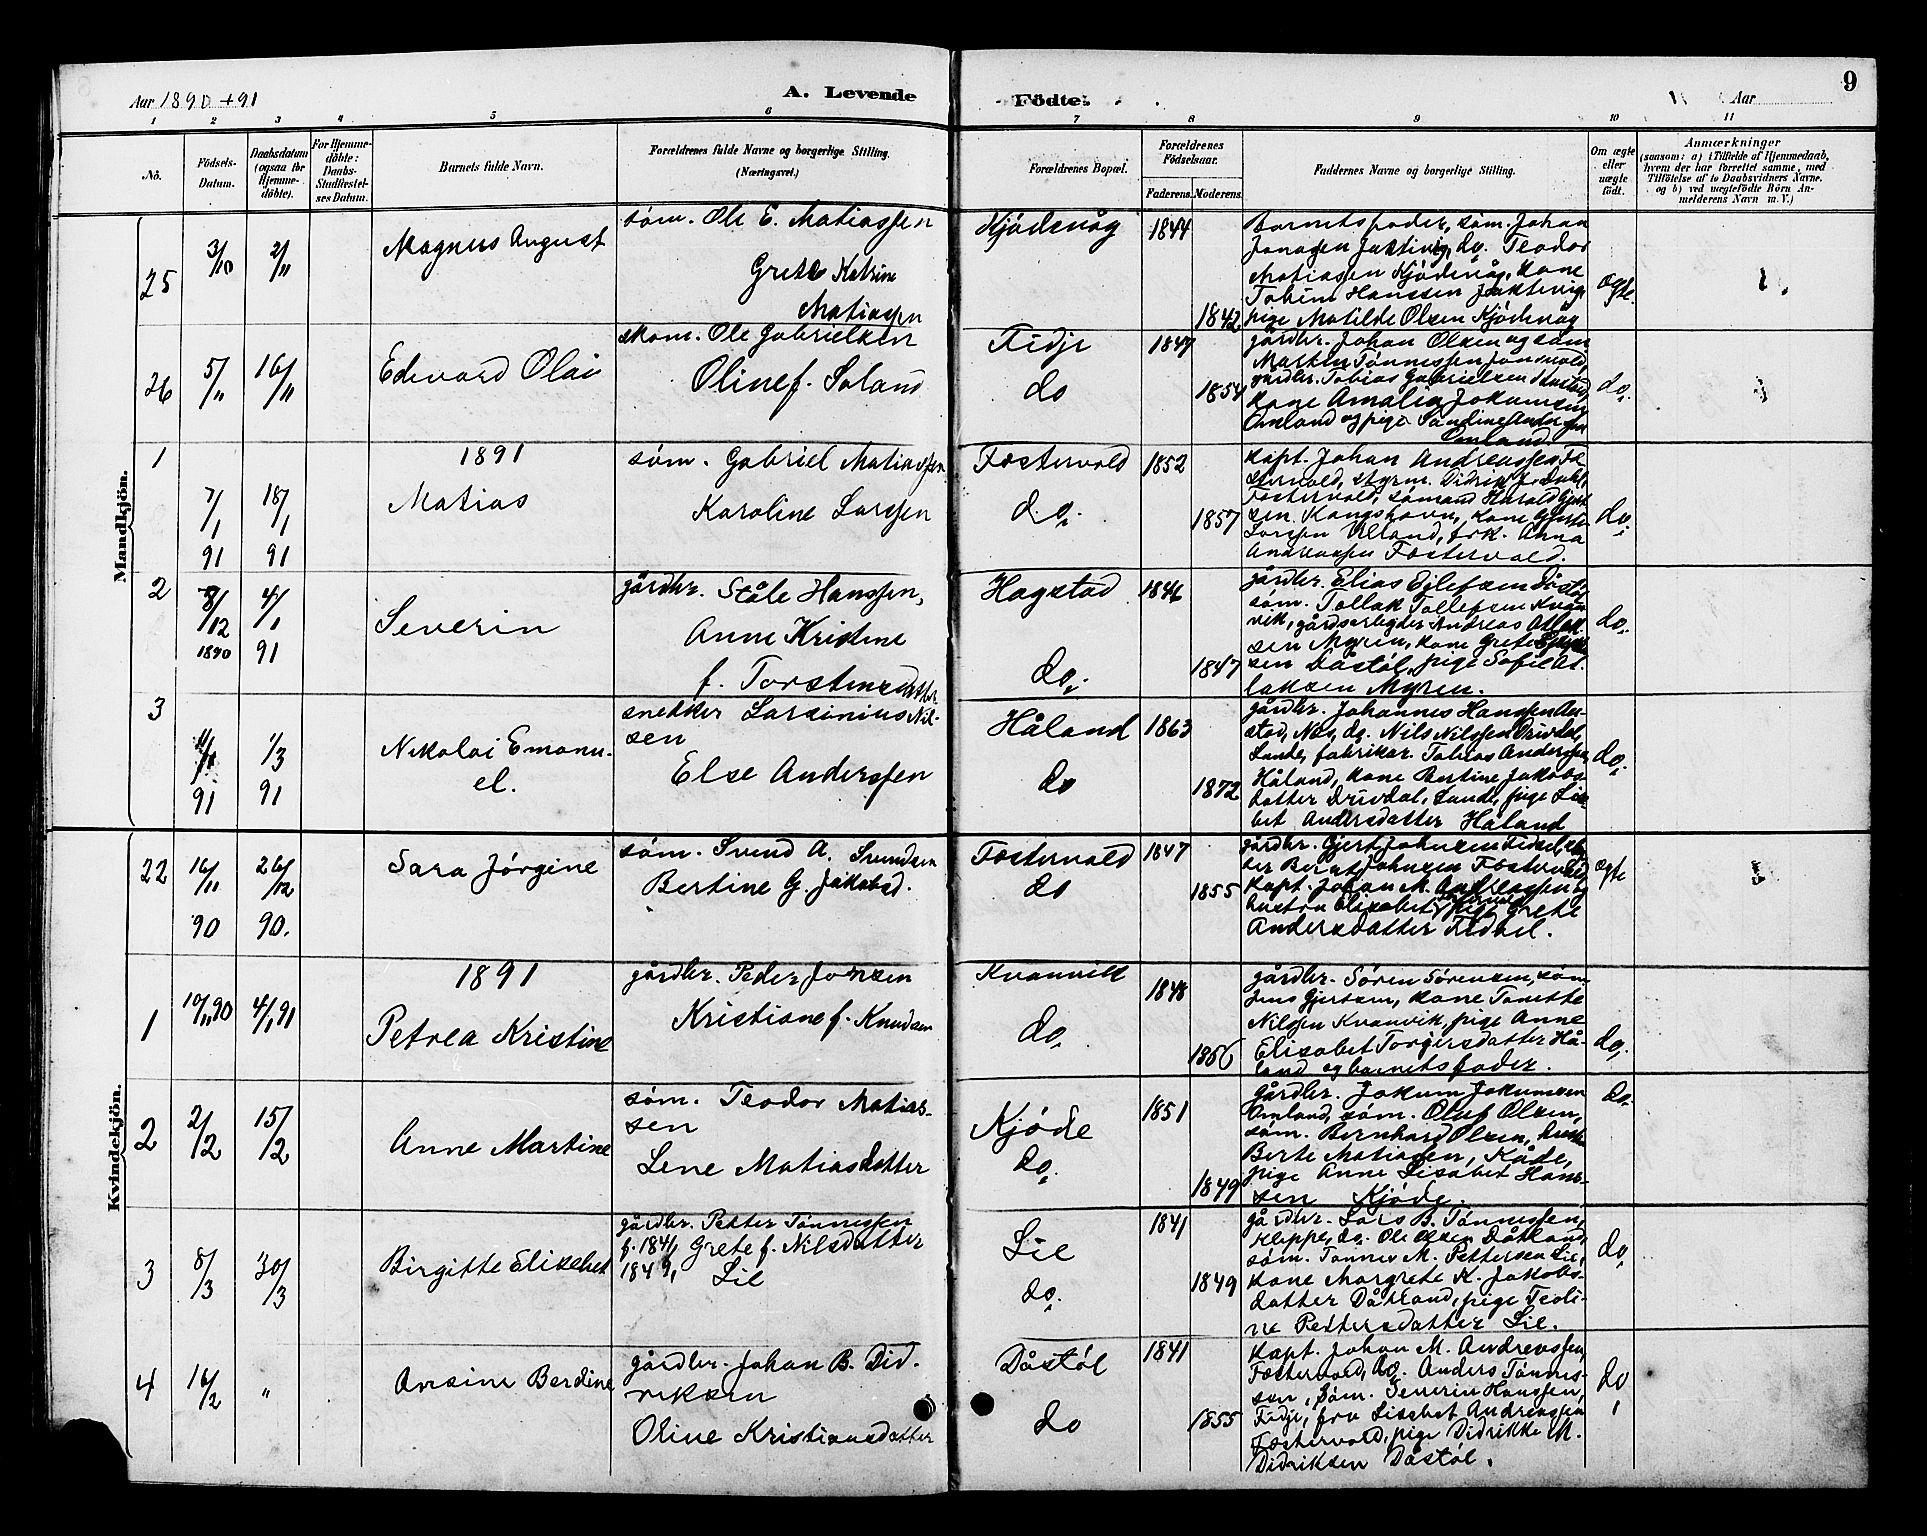 Aar 1890+91
A. Levende
Födte.
Aar
9
1 2 3 4 5 6 7 8 9 10 11
No.
Födsels-Datum.
Daabsdatum (ogsaa for Hjemmedöbte).
For Hjemmedöbte: Daabs-Stadfæstelses Datum.
Barnets fulde Navn.
Forældrenes fulde Navne og borgerlige Stilling. (Næringsvei.)
Forældrenes Bopæl.
Forældrenes Födselsaar.
Faderens. Moderens.
Faddernes Navne og borgerlige Stilling.
Om ægte eller uægte født.
Anmærkninger
(saasom: a) i Tilfælde af Hjemmedaab, hvem der har forrettet samme, med Tilföielse af to Daabsvidners Navne, og b) ved uægtefödte Börn Anmelderens Navn m. V.)
Mandkjön.
25
3/10
2/11
Magnus August
søm. Ole E. Matiassen
Grete Katrine
Matiassen
Kjödevåg
1844
1842
Barnets fader, søm. Johan
Jonasen Jaktevig, do. Teodor
Matiasen Kjödevåg, kone
Tobine Hanssen Jaktevig
pige Matilde Olsen Kjödevåg
ægte
26
5/11
16/11
Edvard Olai
skom. Ole Gabrielsen
Oline f. Soland
Fidje
do
1847
1854
gårdbr. Johan Olsen og søm
Martin Tønnessen
gårdbr. Tobias Gabrielsen
kone Amalia Jokumsen
Omland og pige Tandine Andersen
Omland.
do.
1
7/1
91
18/1
91
1891
Matias
søm. Gabriel Matiassen
Karoline Larssen
Fostervold
do.
1852
1857
kapt. Johan Andreassen Fo
stervold, styrm. Didrik
Fostervold, sømand Harald Gjert
sen Kongshavn, kone
Larssen Ulland, frk. Anna
Andreassen Fostervold.
do.
2
8/12
1890
4/1
91
Severin
gårdbr. Ståle Hanssen,
Anne Kristine
f. Torstensdatter
Hagstad
do.
1846
1847
gårdbr. Elias Eilefsen Dåstøl
søm. Tollak Tollefsen Kvan
vik, gårdsarbeider Andreas Atlak
sen Myren, kone Grete
sen Dåstöl, pige Sofie At
laksen Myren.
do.
3
91
1/3
91
Nikolai Emanu-
el.
snedker Larsinius Nil-
sen
Else Anderssen
Håland
do
1863
1872
gårdbr. Johannes Hanssen
stad, Nes, do. Nils Nilssen Drivdal,
Lande, fabrikar. Tobias Anderssen
Håland, kone Bertine Jakobs
datter Drivdal, Lande, pige Lis
bet Andersdatter Håland
do.
Kvindekjön.
22
16/11
90
26/12
90.
Sara Jørgine
søm. Svend A. Svendsen
Bertine G. Jakobsd.
Fostervold
do
1847
1855
gårdbr. Gjert Johnsen
Bernt Johnsen Fostervold
kapt. Johan M. Andreassen og
hustru Elisabet pige Grete
Andersdatter Fidkil.
ægte
1
10/11 90
4/1 91
1891
Petrea Kristine
gårdbr. Peder Jonsen
Kristiane f. Knudsen
Kvanvik
do.
1848
1856
gårdbr. Søren Sørensen, søm
Jens Gjertsen, kone Tonette
Nilssen Kvanvik, pige Anne
Elisabet Torgersdatter Hå-
land og barnets fader.
do.
2
2/2
15/2
Anne Martine
søm. Teodor Matias-
sen
Lene Matiasdatter
Kjöde
do.
1851
1849
gårdbr. Jokum Jokumsen
Omland, søm. Oluf Olsen,
søm. Bernhard Olsen, hustr
Berte Matiasen, Kåde,
pige Anne Lisabet Hans-
sen Kjöde.
do.
3
8/3
30/3
Birgitte Elisabet
gårdbr. Petter Tønnessen
f. 1841, Grete f. Nilsdatter
1849, Lie
Lie
do.
1841
1849
gårdbr. Lars B. Tønnessen,
Kleppe, do. Ole Olsen Dåtland,
søm. Tønnes M. Pettersen Lie,
kone Margrete K. Jakobs-
datter Dåtland, pige Teoli-
ne Pettersdatter Lie.
do.
4
16/2
"
Ansine Berdine
gårdbr. Johan B. Did-
riksen
Oline Kristiansdatter
Dåstöl
do
1841
1855
kapt. Johan M. Andreassen,
Fostervold, do. Anders Tønnes-
sen, søm. Severin Hanssen,
Fidje, fru Lisabet Andreassen
Fostervold, pige Didrikke M.
Didriksen Dåstöl.
do